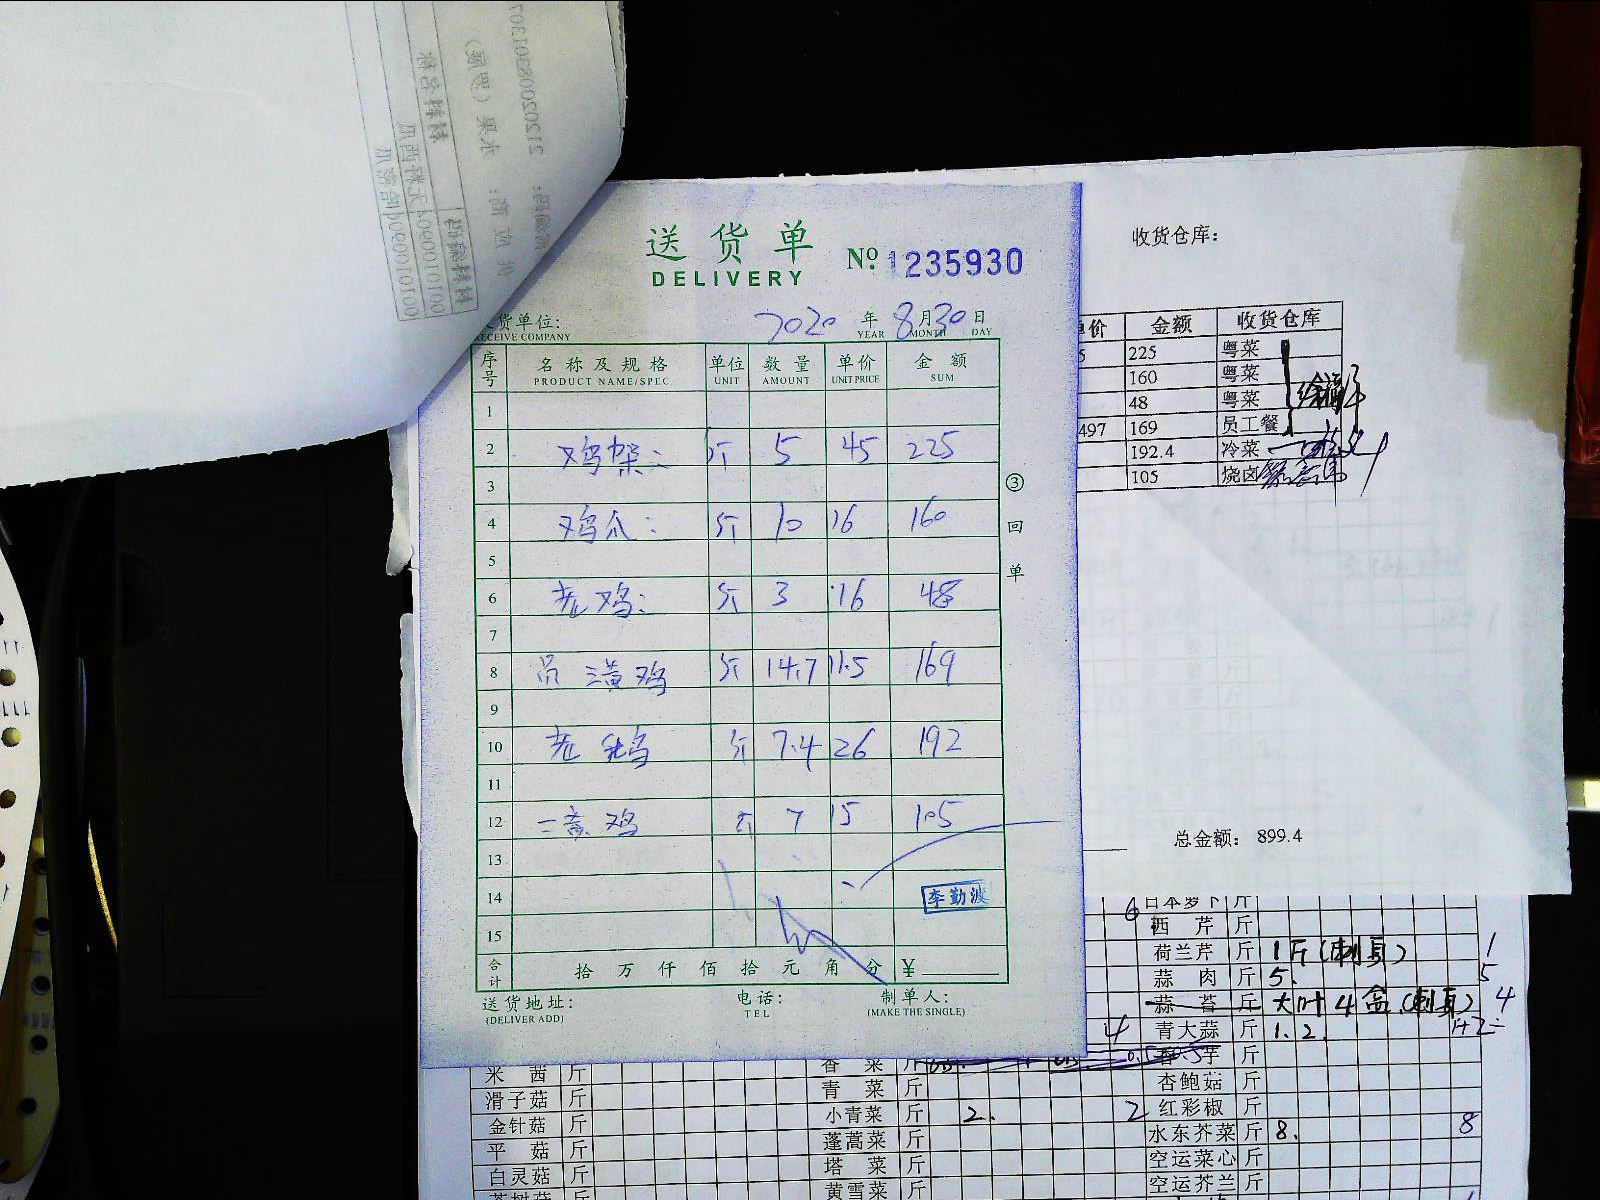 送货单
DELIVERY
№ 1235930
货单位:
RECEIVE COMPANY
2020 年 8 月 30 日
YEAR MONTH DAY
序号 名称及规格 单位 数量 单价 金额
PRODUCT NAME/SPEC UNIT AMOUNT UNIT PRICE SUM
1
2 鸡架: 斤 5 45 225
3
4 鸡爪: 斤 10 16 160
5
6 老鸡: 斤 3 16 48
7
8 员 三黄鸡 斤 14.7 11.5 169
9
10 老鸭 斤 7.4 26 192
11
12 三黄鸡 斤 7 15 105
13
14
15
李勤波
合计 拾万仟佰拾元角分 ¥
送货地址: 电话: 制单人:
(DELIVER ADD) TEL (MAKE THE SINGLE)
③回单
收货仓库:
单价 金额 收货仓库
5 225 粤菜
160 粤菜
48 粤菜
497 169 员工餐
192.4 冷菜
105 烧卤
总金额: 899.4
6 日本萝卜 斤
西芹 斤
荷兰芹 斤 1斤(刺身) 1
蒜肉 斤 5. 5
蒜苔 斤 大叶4盒(刺身) 4
4 青大蒜 斤 1.2.
香芋 斤
杏鲍菇 斤
2 红彩椒 斤
水东芥菜 斤 8. 8
空运菜心 斤
空运芥兰 斤
米茜 斤 香菜 斤
滑子菇 斤 青菜 斤
金针菇 斤 小青菜 斤 2.
平菇 斤 蓬蒿菜 斤
白灵菇 斤 塔菜 斤
黄雪菜 斤